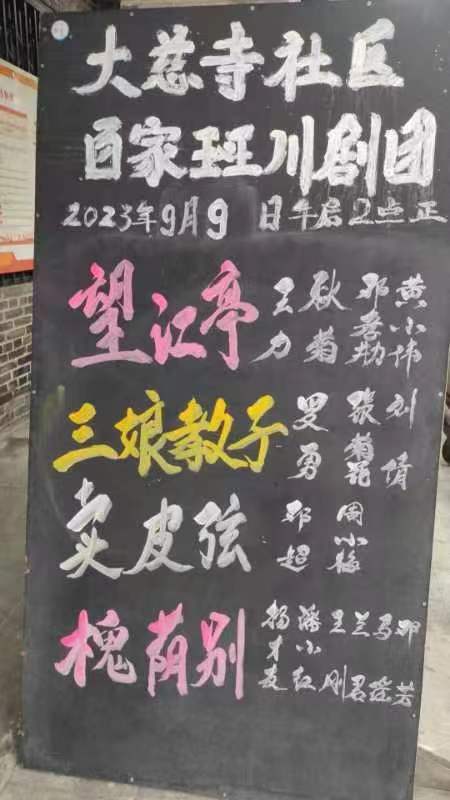 大慈寺社区
百家班川剧团
2023年9月9日午后2点正
望江亭 王力 耿菊 邓春勋 黄小伟
三娘教子 罗勇 张菊花 刘倩
卖皮弦 邓超 周小梅
槐荫别 杨才友 潘小红 王刚 兰君 马莲 邓芳